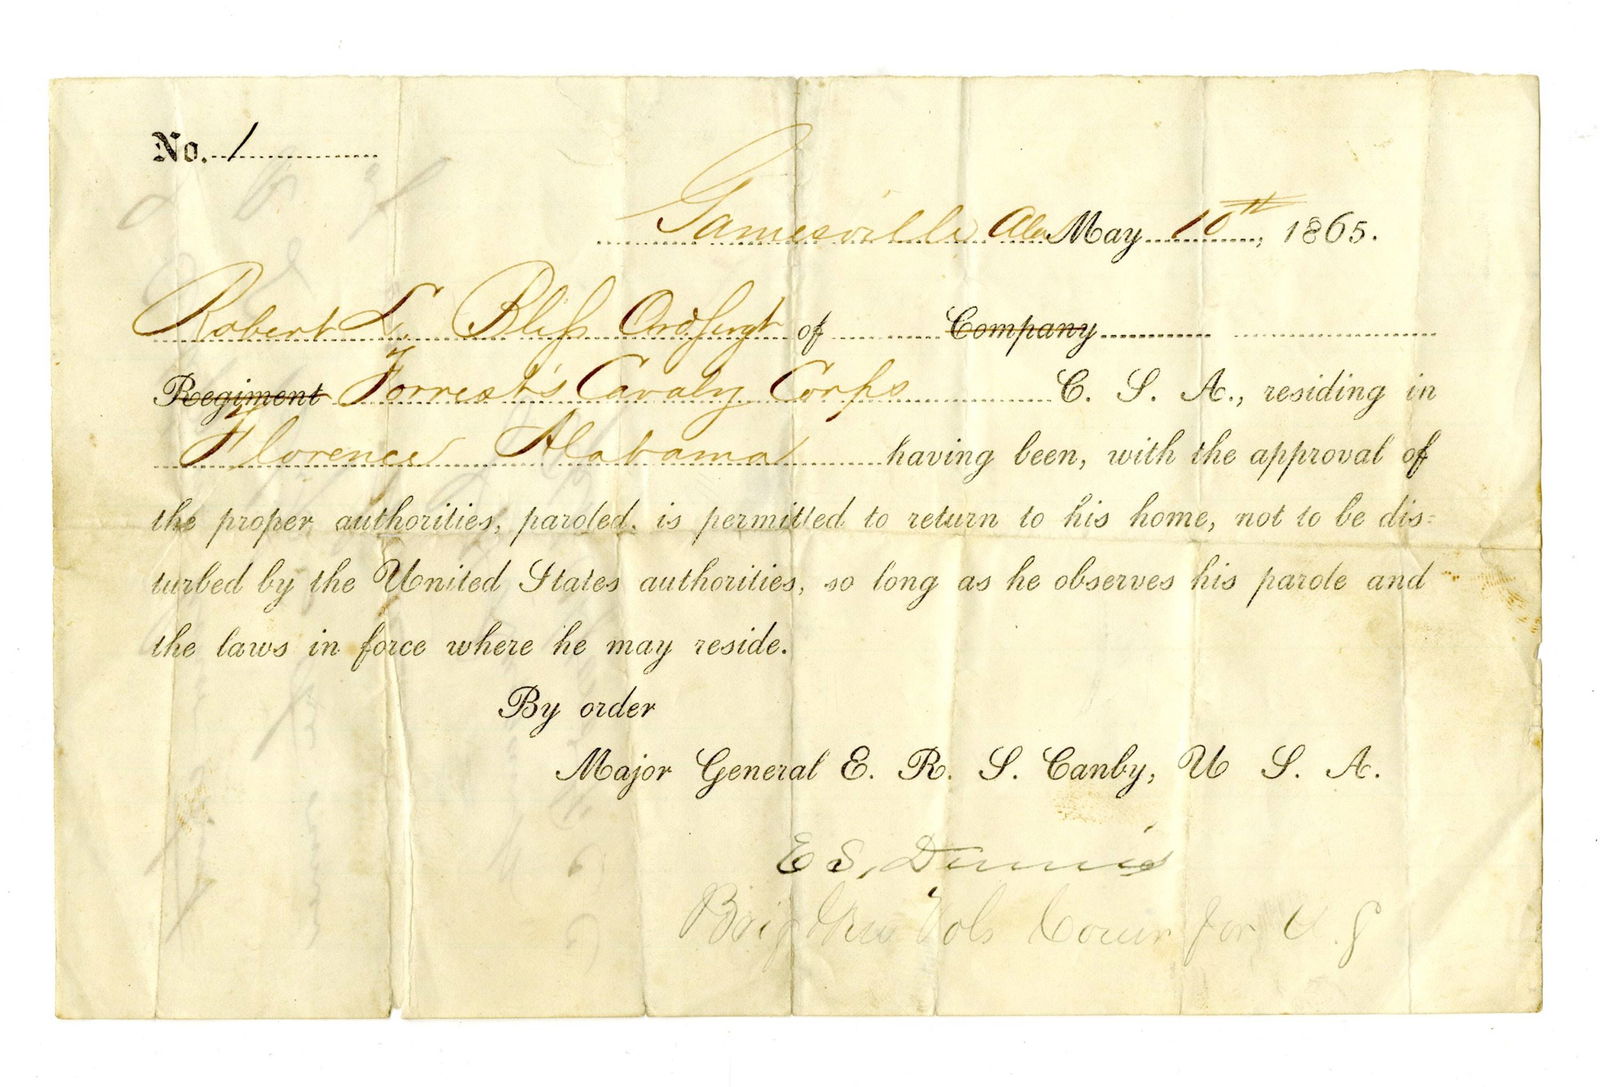 No. 1
Gainesville Ala May 10th, 1865.
Robert L. Bliss Ord Sergt of Company
Regiment Forrest's Cavalry Corps C. S. A., residing in
Florence Alabama having been, with the approval of
the proper authorities, paroled, is permitted to return to his home, not to be dis-
turbed by the United States authorities, so long as he observes his parole and
the laws in force where he may reside.
By order
Major General E. R. S. Canby, U S. A.
E S, Dennis
Brig Genl Vols Comr for U. S